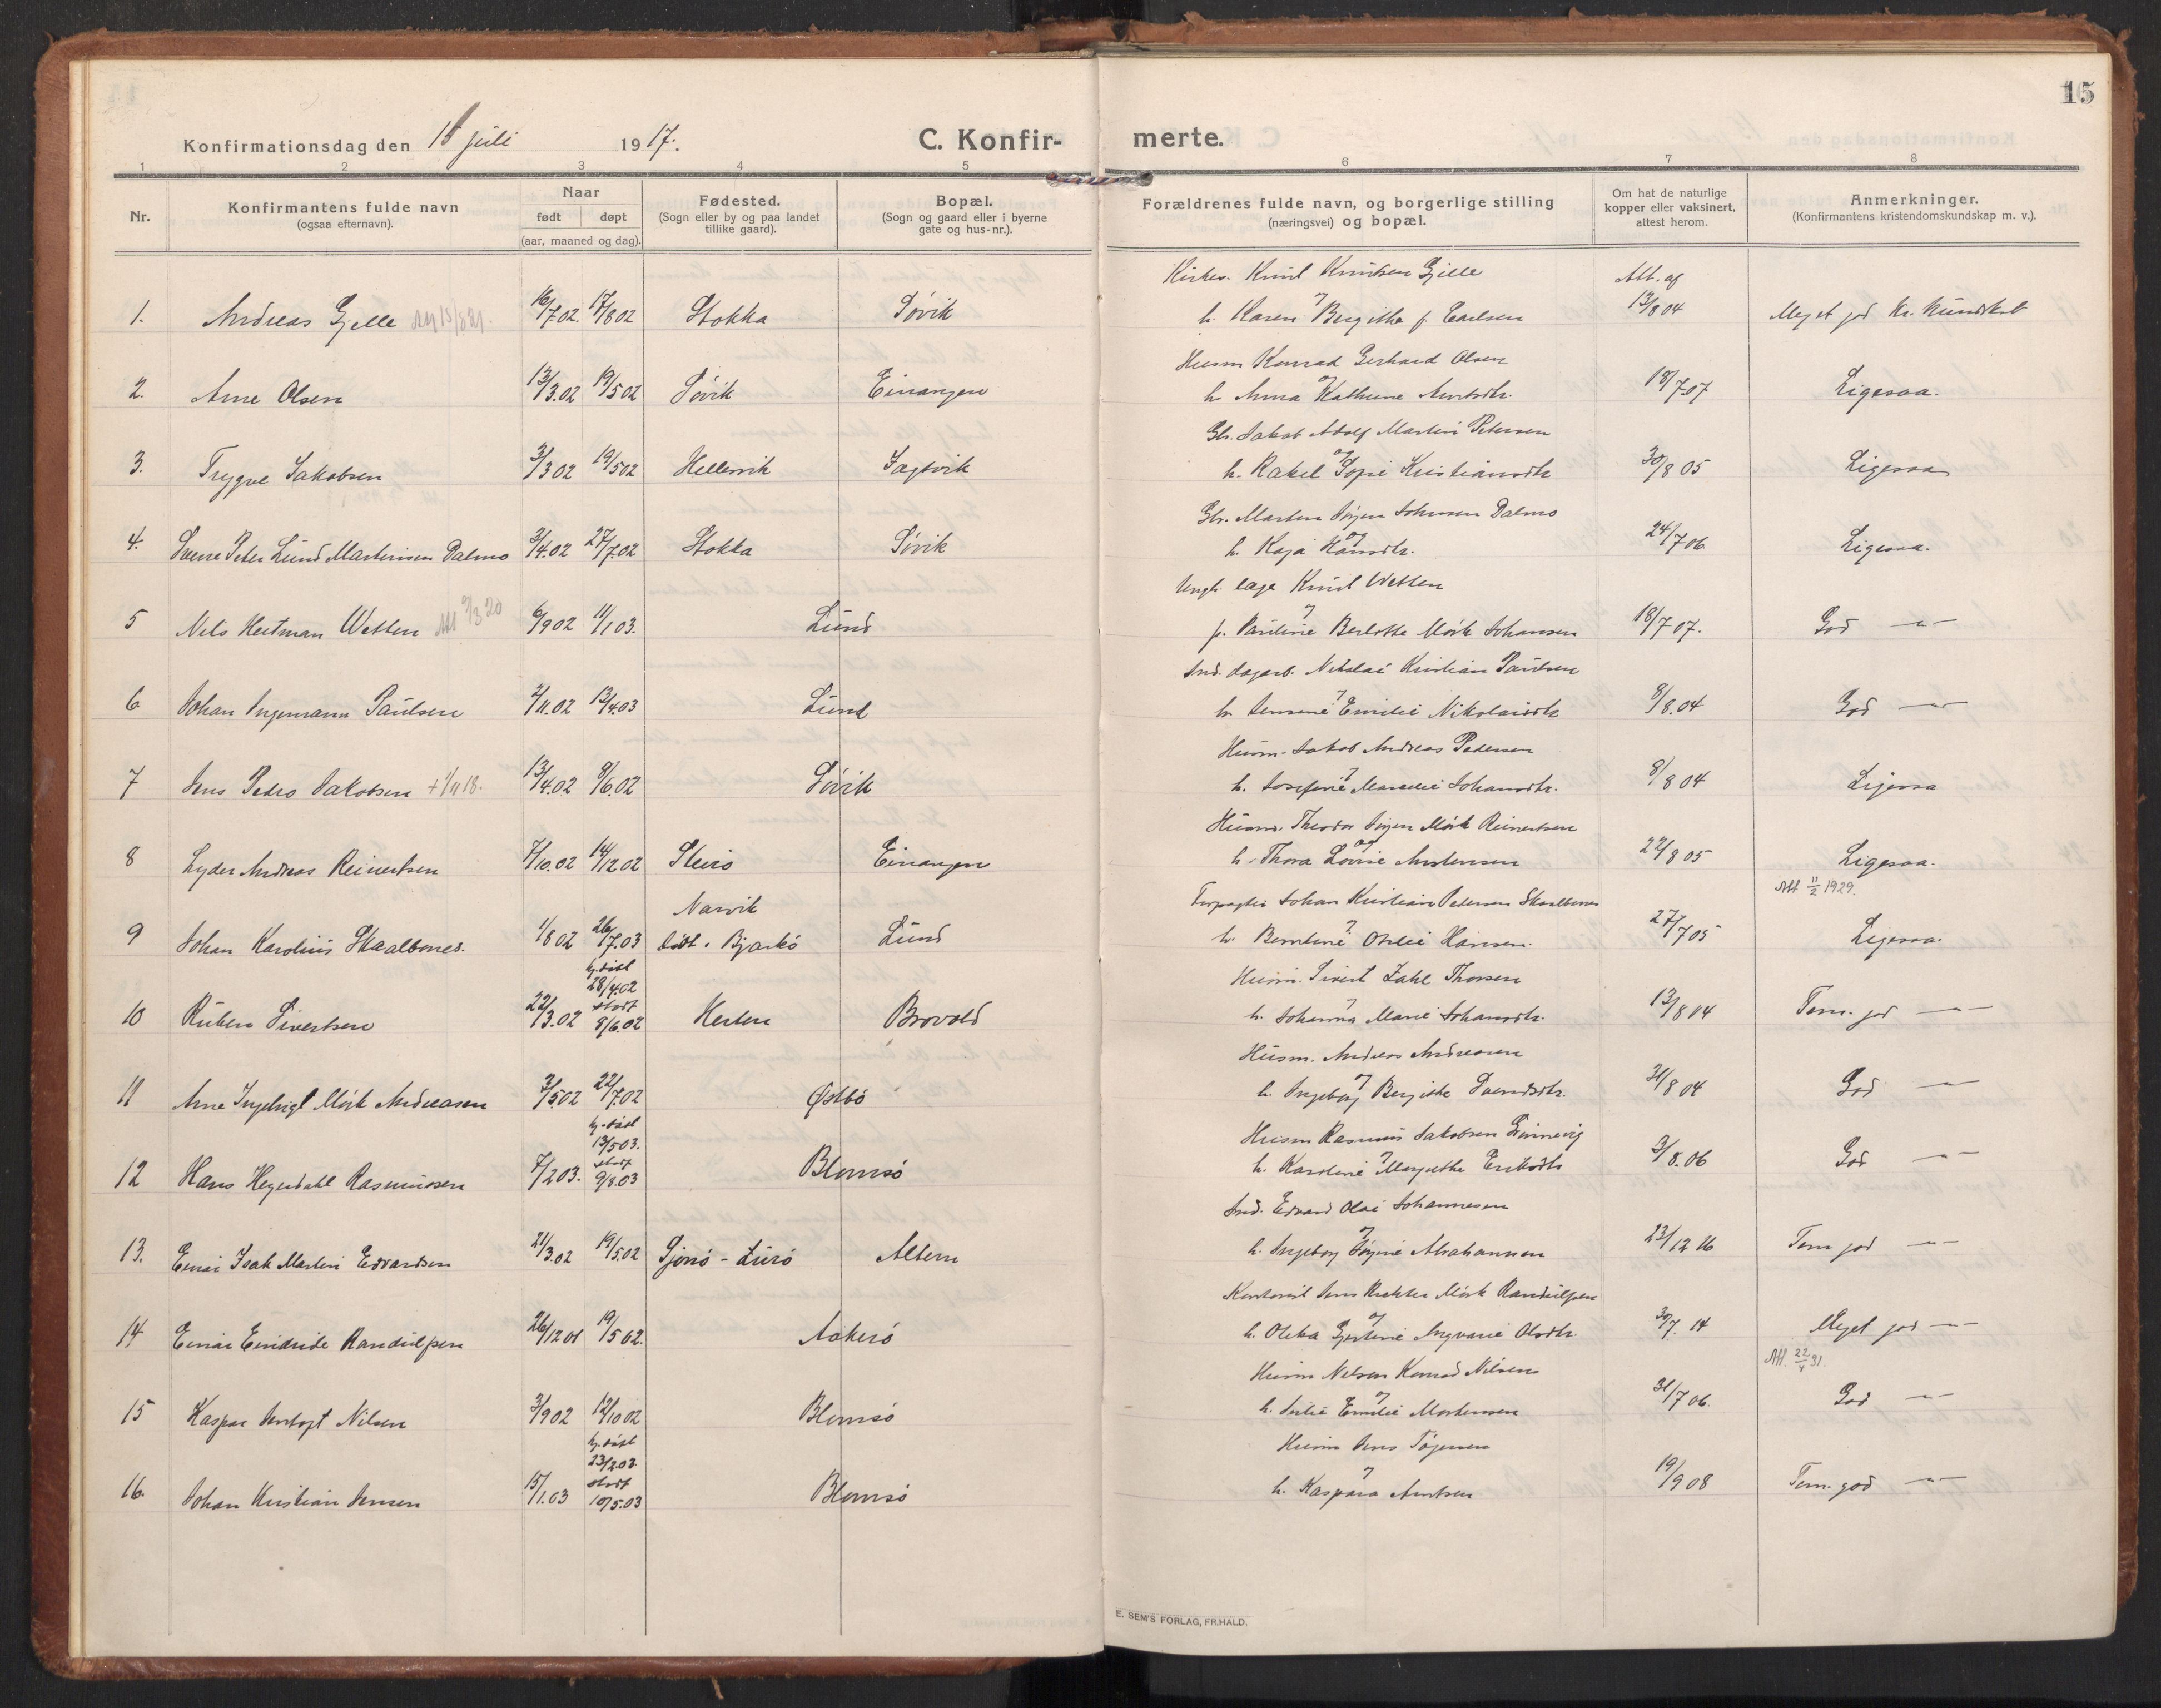 15
Konfirmationsdag den 15 juli 1917.
C. Konfir-
merte.
1 2 3 4 5 6 7 8
Nr.
Konfirmantens fulde navn
(ogsaa efternavn).
Naar
født døpt
(aar, maaned og dag).
Fødested.
(Sogn eller by og paa landet
tillike gaard).
Bopæl.
(Sogn og gaard eller i byerne
gate og hus-nr.).
Forældrenes fulde navn, og borgerlige stilling
(næringsvei) og bopæl.
Om hat de naturlige
kopper eller vaksinert,
attest herom.
Anmerkninger.
(Konfirmantens kristendomskundskap m. v.).
Kirkes. Knut Knutsen Gjelle Att. af
1. Andreas Gjelle 16/7 02. 17/8 02 Stokka Søvik og h. Karen Bergithe f. Carlsen 13/8 04 Meget god Kr. Kundskab
Husm Konrad Gerhard Olsen
2. Arne Olsen 13/3.02 19/5 02 Søvik Einangen og h. Anna Kathrine Arntsdtr. 18/7 07 Ligesaa.
Gbr. Jakob Adolf Martin Petersen
3. Trygve Jakobsen 3/3 02 19/5 02 Hellesvik Fagervik og h. Rakel Sofie Kristiansdtr 30/8 05 Ligesaa
Gbr. Martin Jørgen Johnsen Dalmo
4. Sverre Peter Lund Martinsen Dalmo 3/4.02 27/7.02 Stokka Søvik og h. Kaja Hansdtr. 24/7 06 Ligesaa.
læge Knut Wetten
5 Nels Heitman Wetten 9/3 20 6/9 02 11/1 03. Lund og f. Pauline Berlotte Mørk Johansen 18/7 07. God —"—
Ind. dagarb. Nikolai Kristian Paulsen
6 Johan Ingemann Paulsen 2/11.02 13/4.03 Lund og h. Jensine Emilie Nikolaisdtr 8/8.04 God —"—
Husm. Jakob Andreas Pedersen
7 Jens Pedro Jakobsen + 1/11 18. 13/4.02 8/6.02 Søvik og h. Josefine Marelie Johansdtr. 8/8 04 Ligesaa
Husmd. Theodor Jørgen Mørk Reinertsen
8 Lyder Andreas Reinertsen 7/10.02 14/12 02 Steiro Einangen og h. Thora Lovise Andersen 22/8 05 Ligesaa.
Att 11/2 1929.
Narvik Forpagter Johan Kristian Pedersen Skaalbones
9 Johan Karolius Skaalbones. 1/8 02 26/7.03 døbt i Bjarkø Lund og h. Berntine Otelie Hansen. 27/7 05 Ligesaa.
hj. døbt
28/4.02 Husm. Sivert Zahl Thorsen
10 Ruben Sivertsen 22/3.02 stadf 8/6.02 Hesten Brovold og h. Johanna Marie Johansdtr. 13/8 04 Tem. god —"—
Husm. Andreas Andreasen
11 Arne Ingebrigt Mørk Andreasen 3/5.02 22/7.02 Østbø og h. Ingeborg Bergitte Svendsdtr. 31/8 04 God —"—
hj. døbt
13/5 03. Husm Rasmus Jakobsen
12 Hans Hegerdahl Rasmussen 7/2 03. stadf 9/8.03 Blomsø og h. Karoline Margrethe Eriksdtr 3/8.06 God —"—
Ind. Edvard Olai Johannesen
13. Einar Isak Martin Edvardsen 21/3.02 19/5.02 Gjersø - Lurø Altern og h. Ingeborg Jørgine Abrahamsen 23/12 16 Tem god —"—
Kontorist Jens Richter Mørk Randulfsen
14 Einar Eindride Randulfsen 26/12 01 19/5 02. Aakerø og h. Oleka Gjertine Ingvarie Olsdtr. 30/7. 14 Meget god —"—
Att. 22/4 31.
Husm Nelson Konrad Nilsen
15 Kaspar Nilsen 3/9 02 12/10 02 Blomsø og h. Julie Emilie Mortensen 31/7 06. God —"—
hj. døbt
23/2.03. Husm Jens Tøgersen
16. Johan Kristian Jensen 15/1.03 stadf 10/5.03 Blomsø og h. Kaspara Arntsen 19/9 08 Tem. god —"—
E. SEM'S FORLAG, FR.HALD.